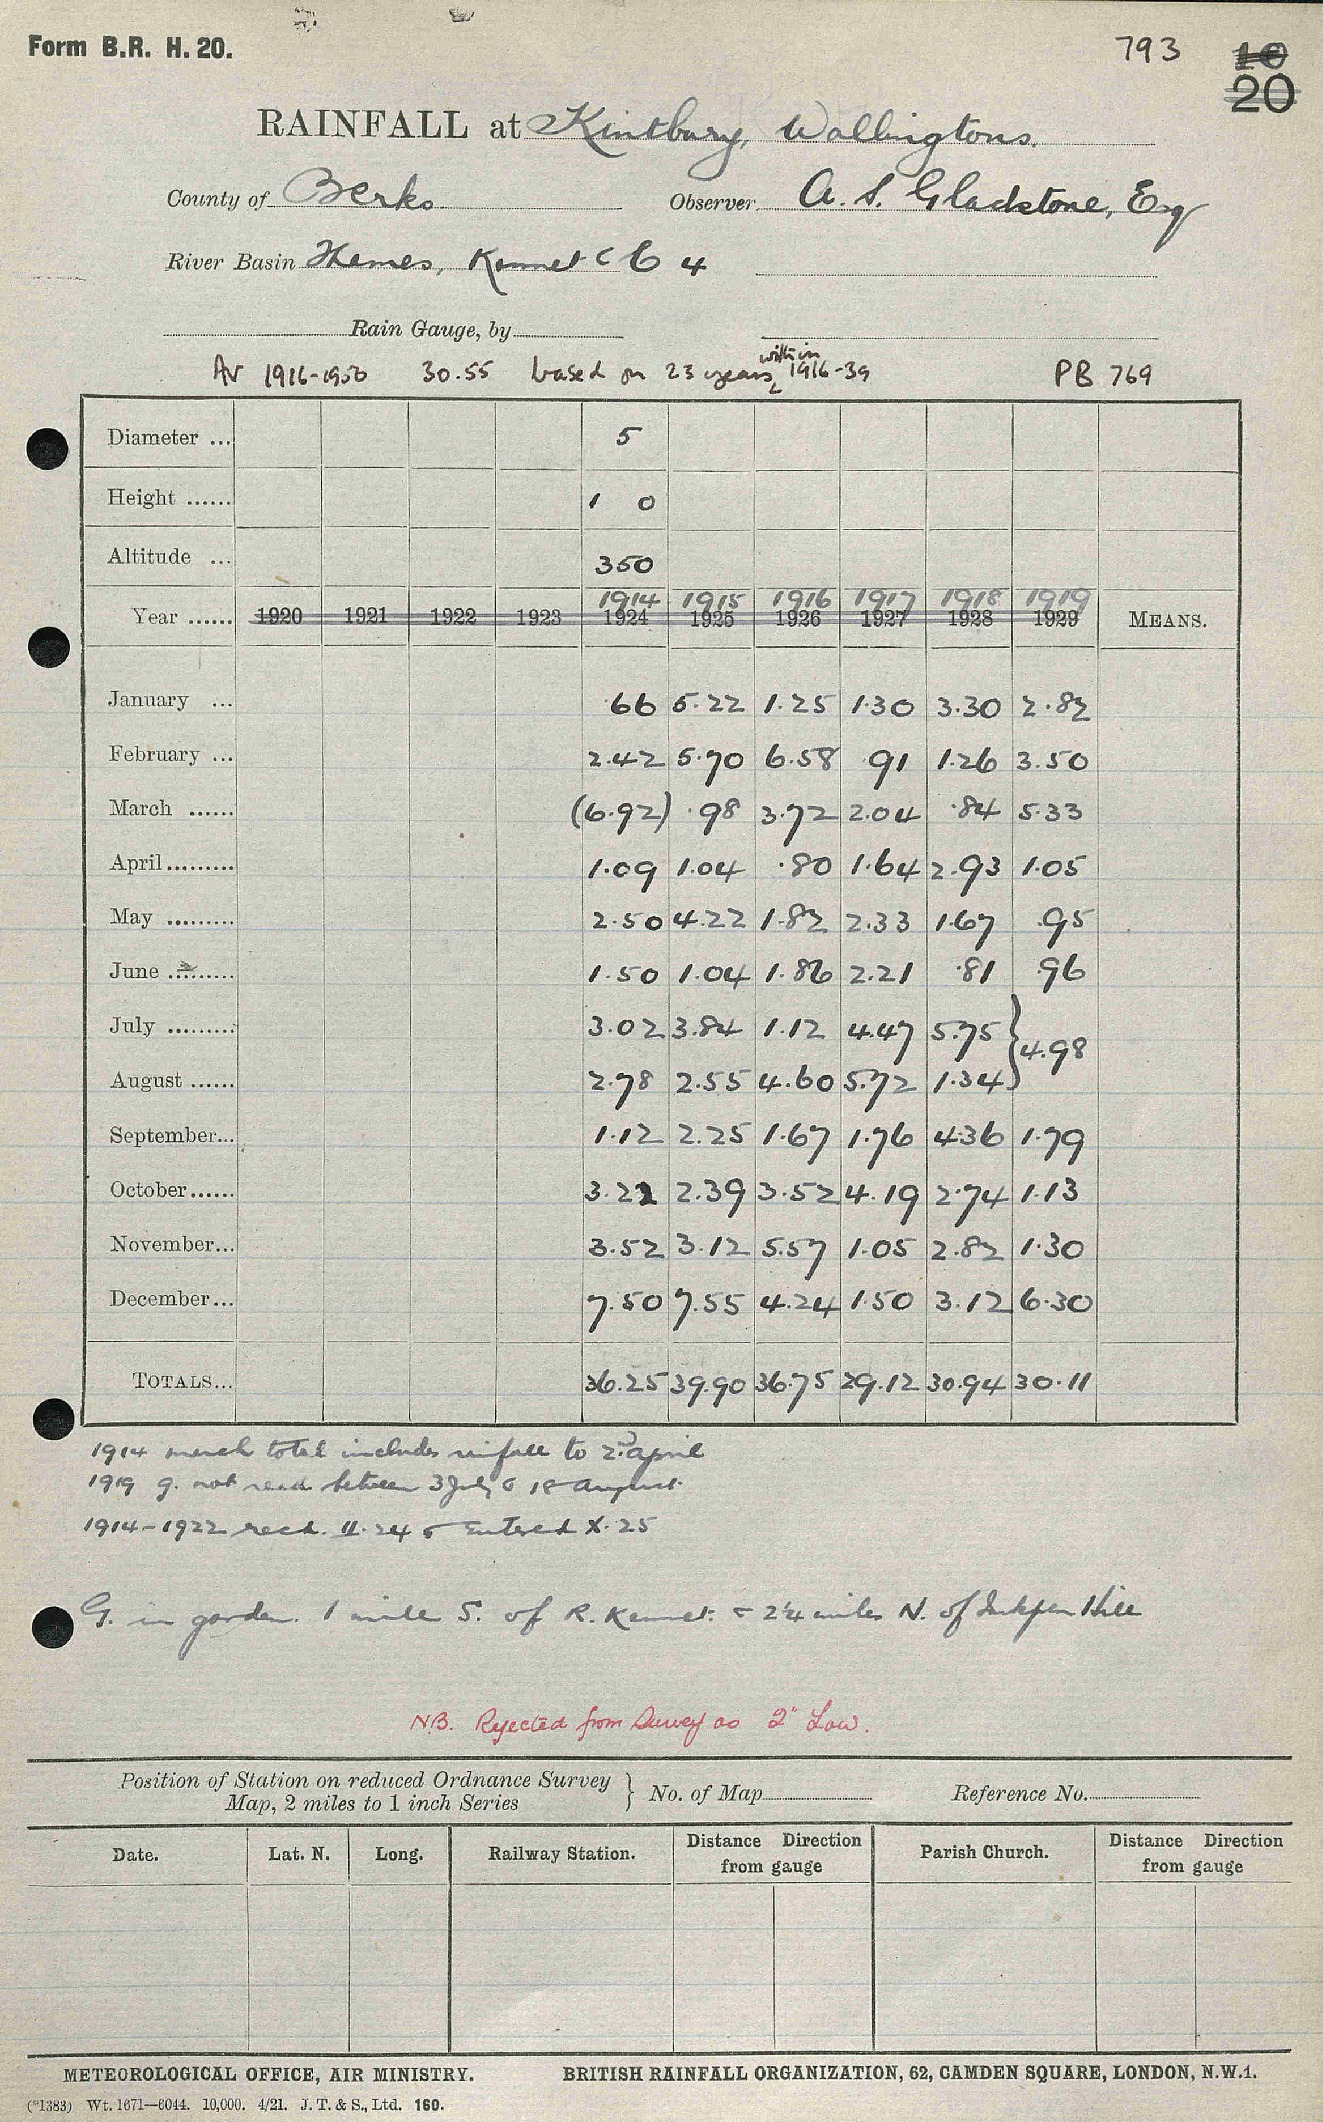 Form B.R. H. 20.
793
10
20
RAINFALL at Kintbury, Wallingtons.
County of Berks. Observer A. S. Gladstone, Esq
River Basin Thames, Kennet C6 4
Rain Gauge, by
Av 1916-1950 30.55 based on 23 years within 1916-39 PB 769
Diameter ... 5
Height ...... 1 0
Altitude ... 350
1914 1915 1916 1917 1918 1919
Year ...... 1920 1921 1922 1923 1924 1925 1926 1927 1928 1929 MEANS.
January ... .66 5.22 1.25 1.30 3.30 2.82
February ... 2.42 5.70 6.58 .91 1.26 3.50
March ...... (6.92) .98 3.72 2.04 .84 5.33
April......... 1.09 1.04 .80 1.64 2.93 1.05
May ......... 2.50 4.22 1.82 2.33 1.67 .95
June ......... 1.50 1.04 1.86 2.21 .81 .96
July ......... 3.02 3.84 1.12 4.47 5.75 } 4.98
August ...... 2.78 2.55 4.60 5.72 1.34
September... 1.12 2.25 1.67 1.76 4.36 1.79
October...... 3.22 2.39 3.52 4.19 2.74 1.13
November... 3.52 3.12 5.57 1.05 2.82 1.30
December... 7.50 7.55 4.24 1.50 3.12 6.30
TOTALS... 36.25 39.90 36.75 29.12 30.94 30.11
1914 march total includes rainfall to 2nd april
1919 g. not read between 3 July & 18 August.
1914-1922 recd. II.24 & Entered X.25
G. in garden. 1 mile S. of R. Kennet. & 2¼ miles N. of Inkpen Hill
NB. Rejected from Survey as 2" Low.
Position of Station on reduced Ordnance Survey } No. of Map Reference No.
Map, 2 miles to 1 inch Series
Date. Lat. N. Long. Railway Station. Distance Direction from gauge Parish Church. Distance Direction from gauge
METEOROLOGICAL OFFICE, AIR MINISTRY. BRITISH RAINFALL ORGANIZATION, 62, CAMDEN SQUARE, LONDON, N.W.1.
(*1383) Wt. 1671—6044. 10,000. 4/21. J. T. & S., Ltd. 160.